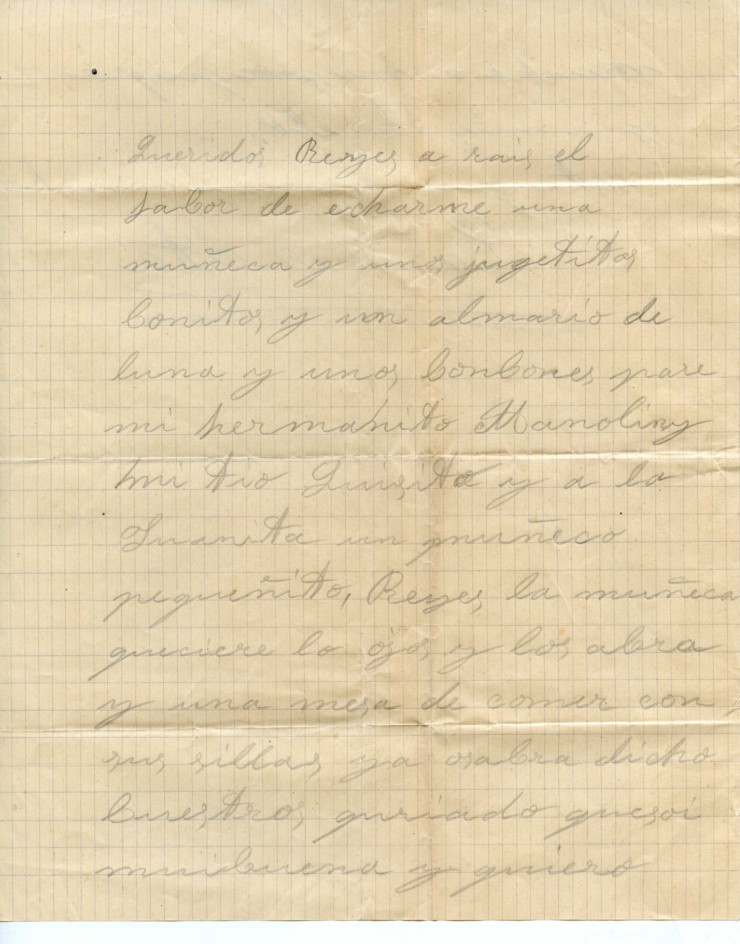 Queridos Reyes a rais el
fabor de echarme una
muñeca y unos jugetitos
bonitos y un almario de
luna y unos bonbones para
mi hermanito Manolin y
mi tio Luisito y a la
Juanita un muñeco
pequeñito, Reyes la muñeca
queciere lo ojos y los abra
y una mesa de comer con
sus sillas ya osabra dicho
buestros guriado quesoi
muibuena y quiero